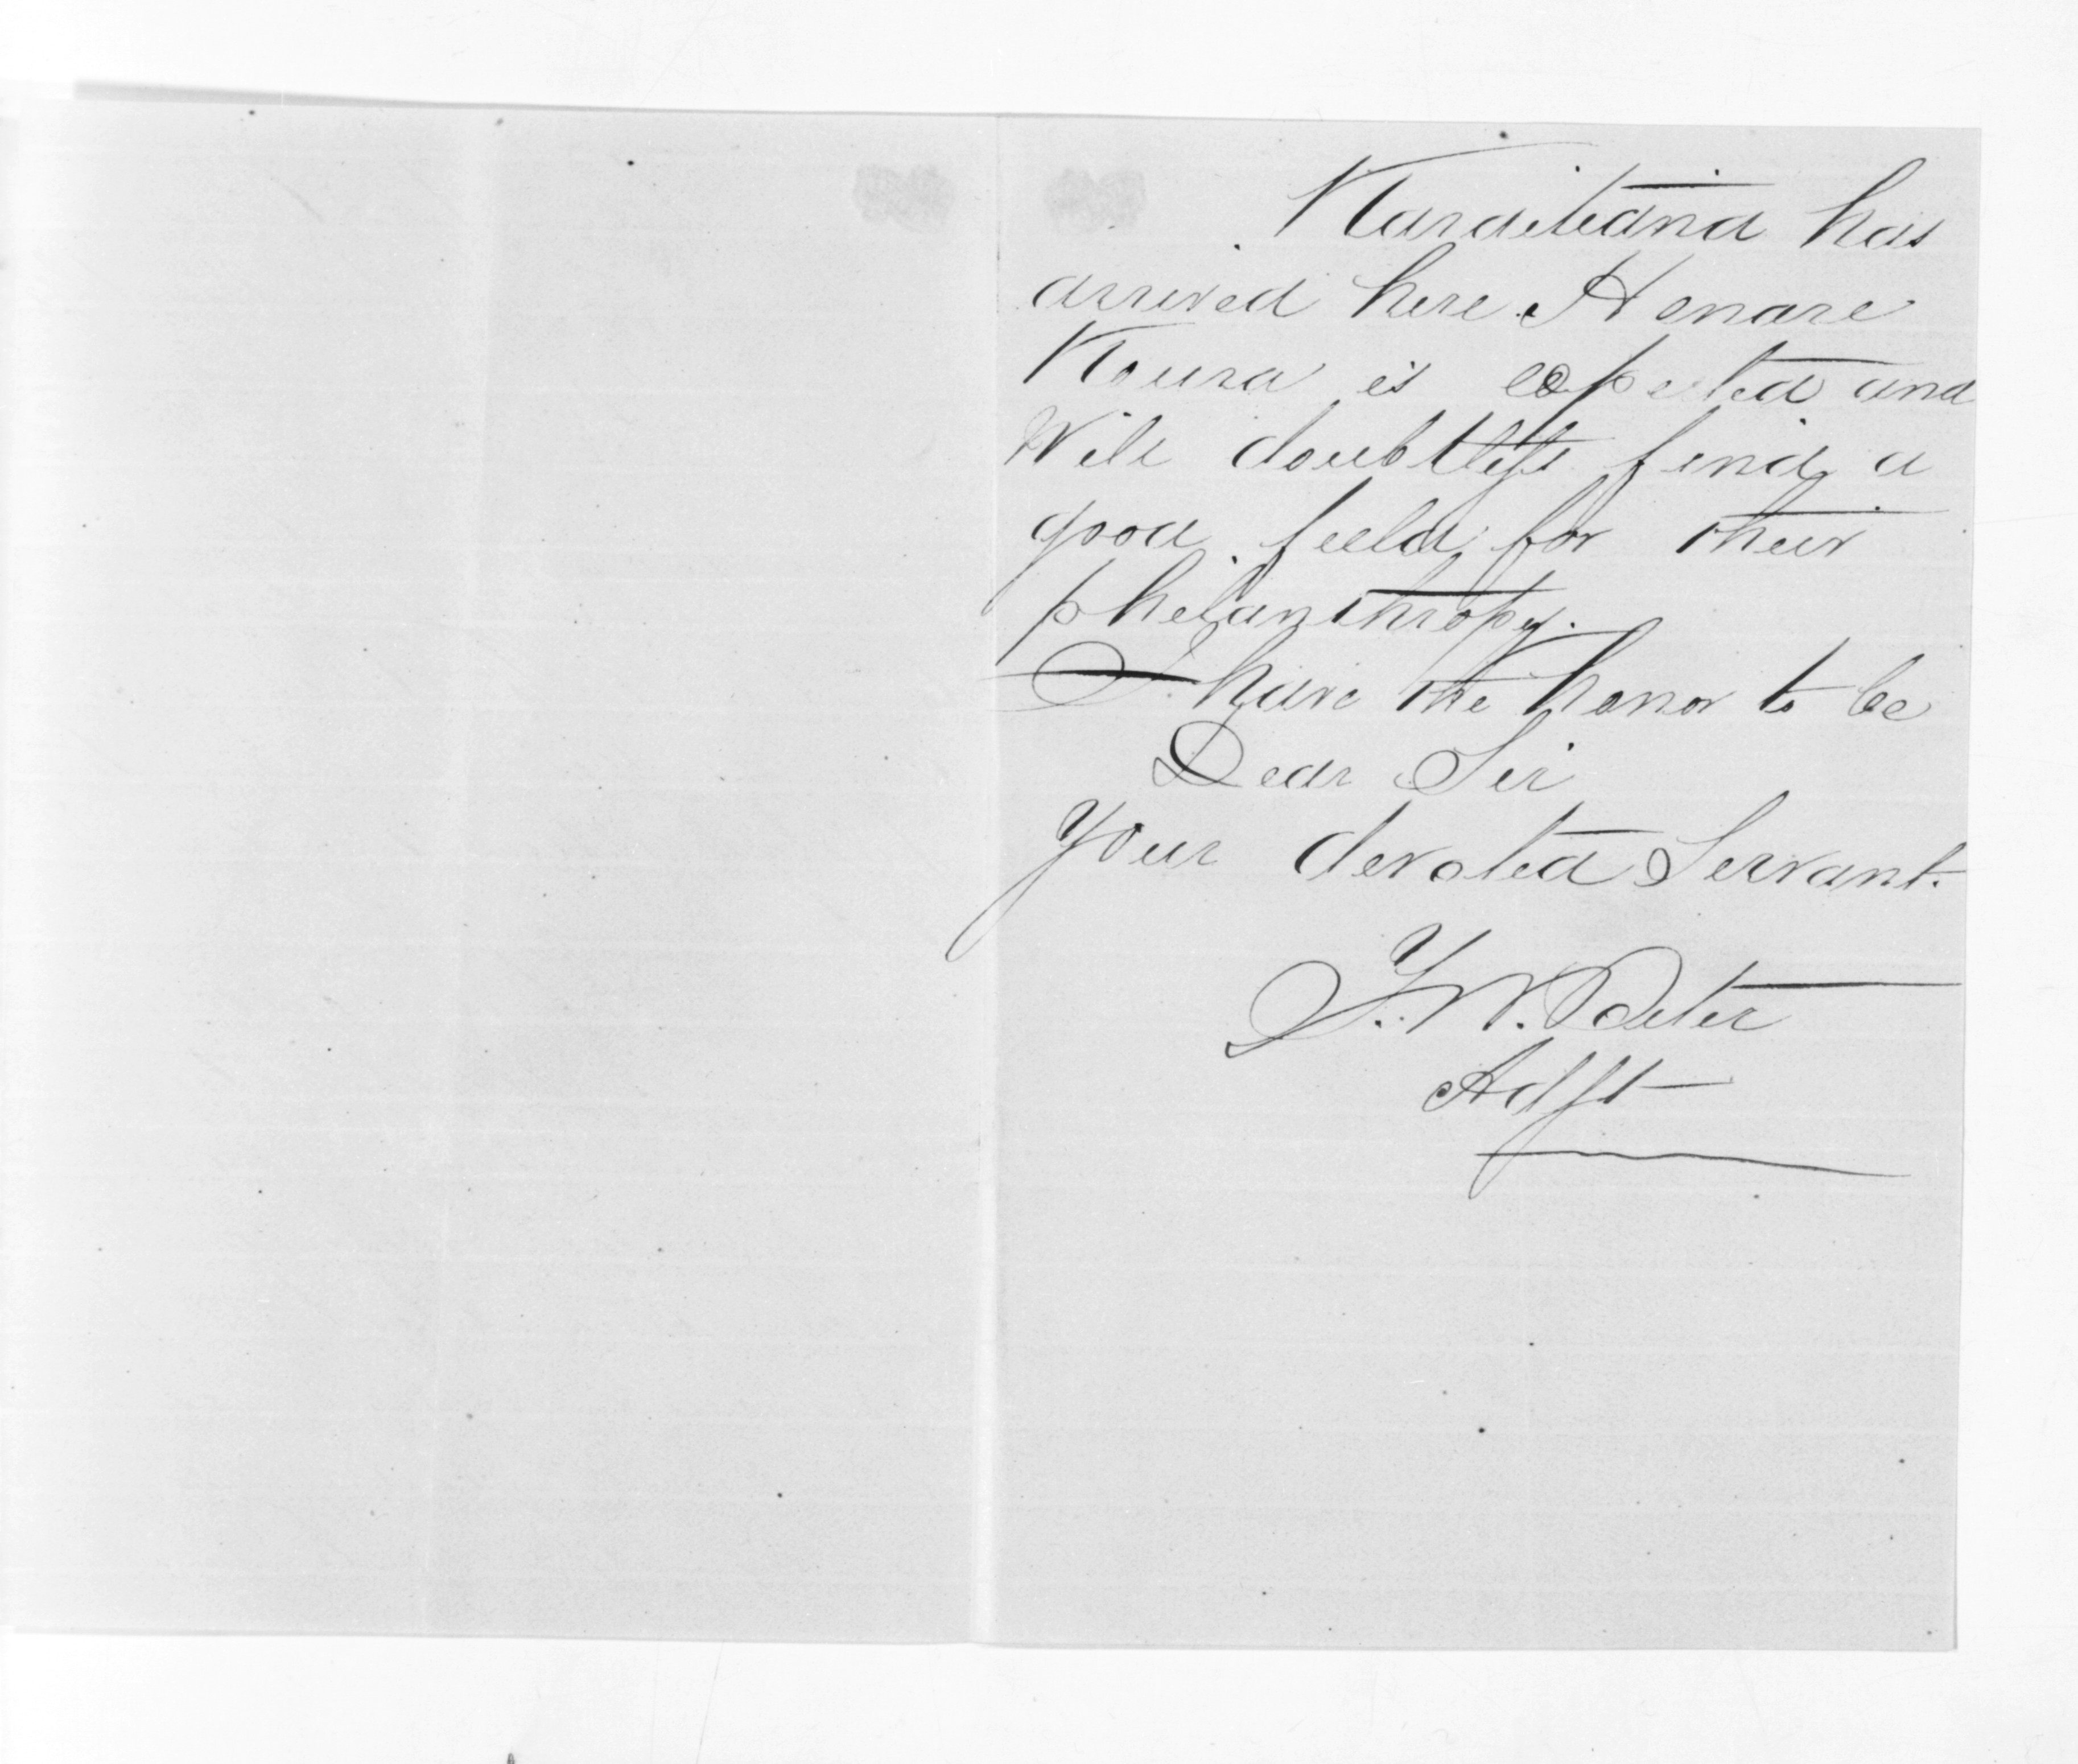 Karaitiana has
arrived here. Henare
Koura is expected and
Will doubtless find a
good field for their
philanthropy.
I have the honor to be
Dear Sir
Your devoted Servant.
F. W. Peter
Adjt